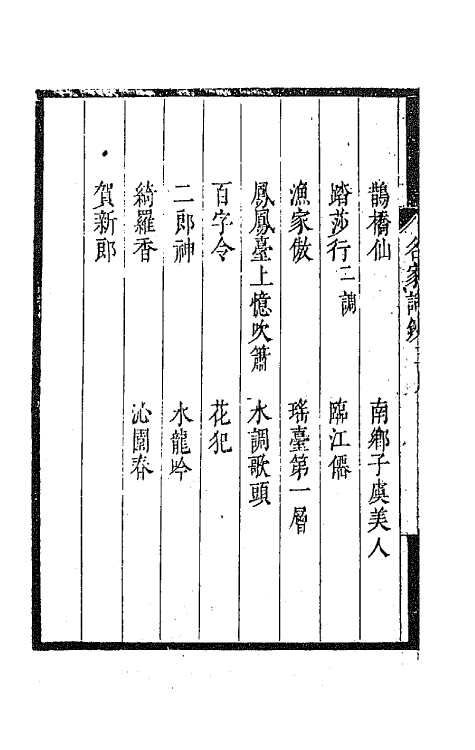 名家詞鈔
鵲橋仙　南鄉子虞美人
踏莎行二調　臨江僊
漁家傲　瑤臺第一層
鳳鳳臺上憶吹簫　水調歌頭
百字令　花犯
二郎神　水龍吟
綺羅香　沁園春
賀新郎